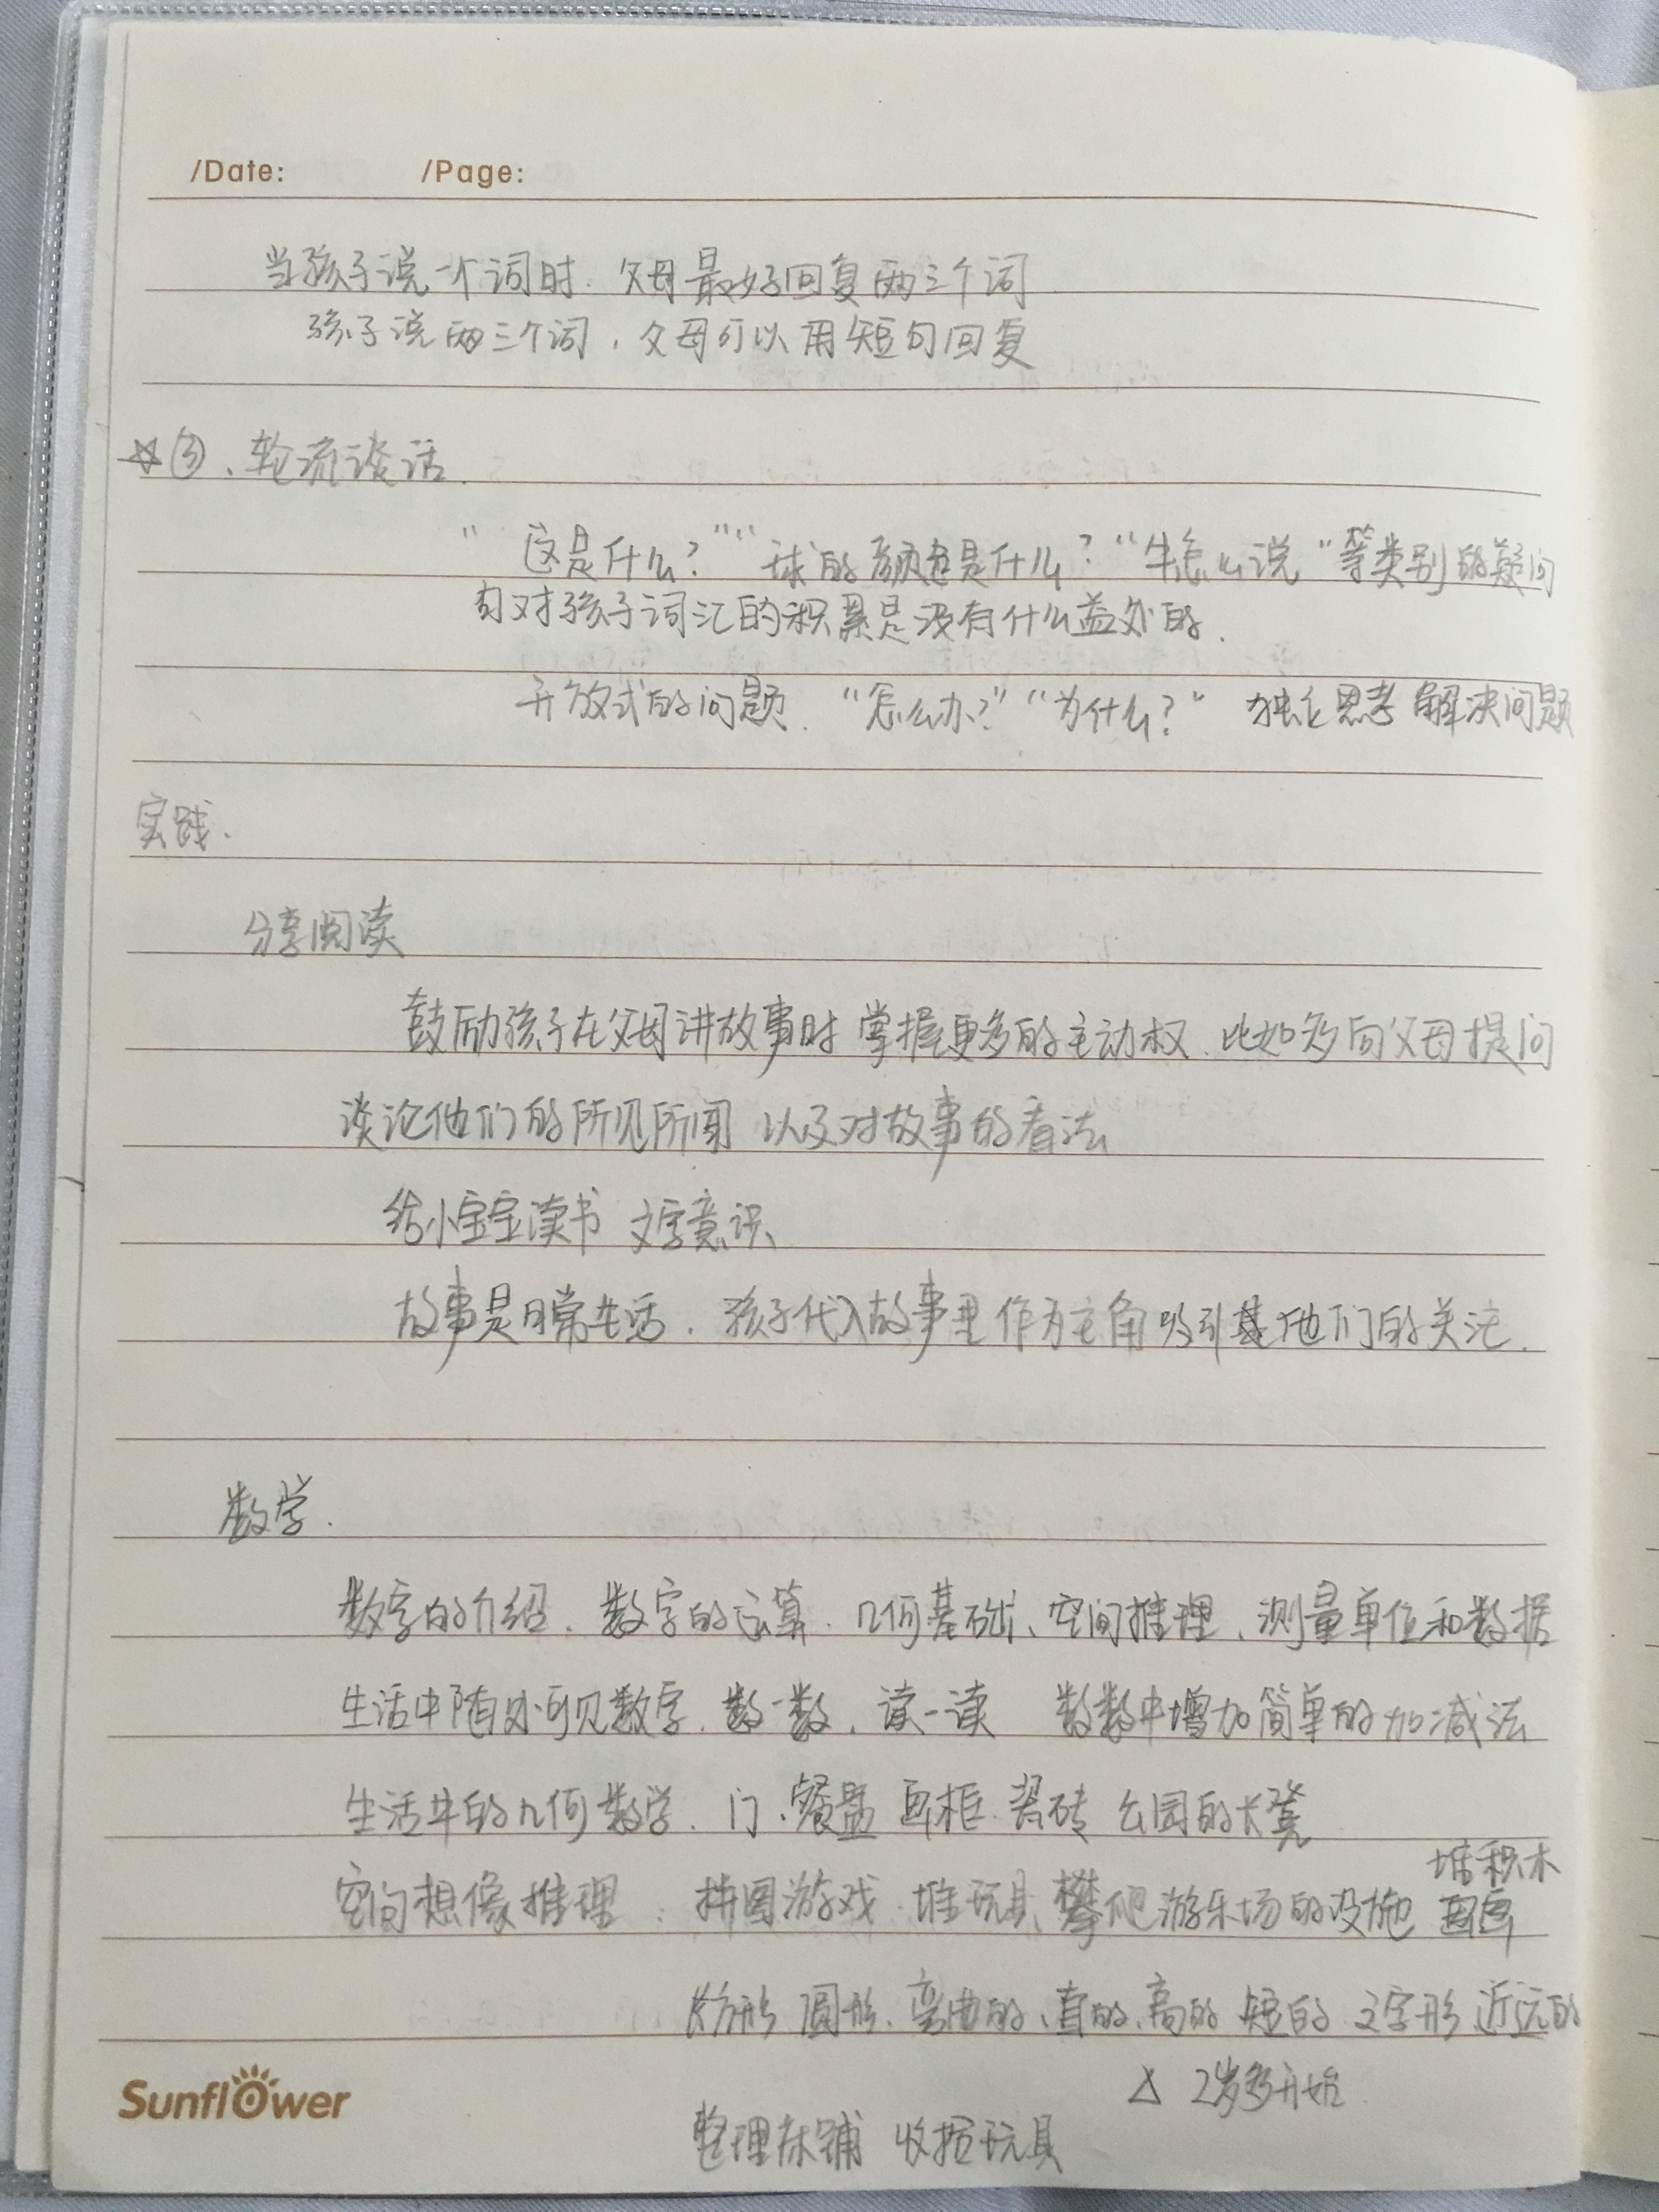 /Date: /Page:
当孩子说一个词时. 父母最好回复两三个词
孩子说两三个词, 父母可以用短句回复
☆③、轮流谈话.
"这是什么?""球的颜色是什么?"“牛怎么说"等类别的疑问
句对孩子词汇的积累是没有什么益处的.
开放式的问题. “怎么办?”“为什么?" 独立思考 解决问题
实践.
分享阅读
鼓励孩子在父母讲故事时 掌握更多的主动权. 比如多向父母提问
谈论他们的所见所闻 以及对故事的看法
给小宝宝读书 文字意识
故事是日常生活. 孩子代入故事里作为主角吸引其他们的关注.
数学.
数字的介绍. 数字的运算. 几何基础、空间推理、测量单位和数据
生活中随处可见数字. 数一数. 读一读 数数中增加简单的加减法
生活中的几何数学. 门. 餐盘 画框. 瓷砖 公园的长凳
堆积木
空间想像推理: 拼图游戏. 堆玩具 攀爬游乐场的设施 画画
长方形 圆形. 弯曲的、直的、高的 短的 文字形 近远的
△ 2岁多开始
整理床铺 收拾玩具
Sunflower